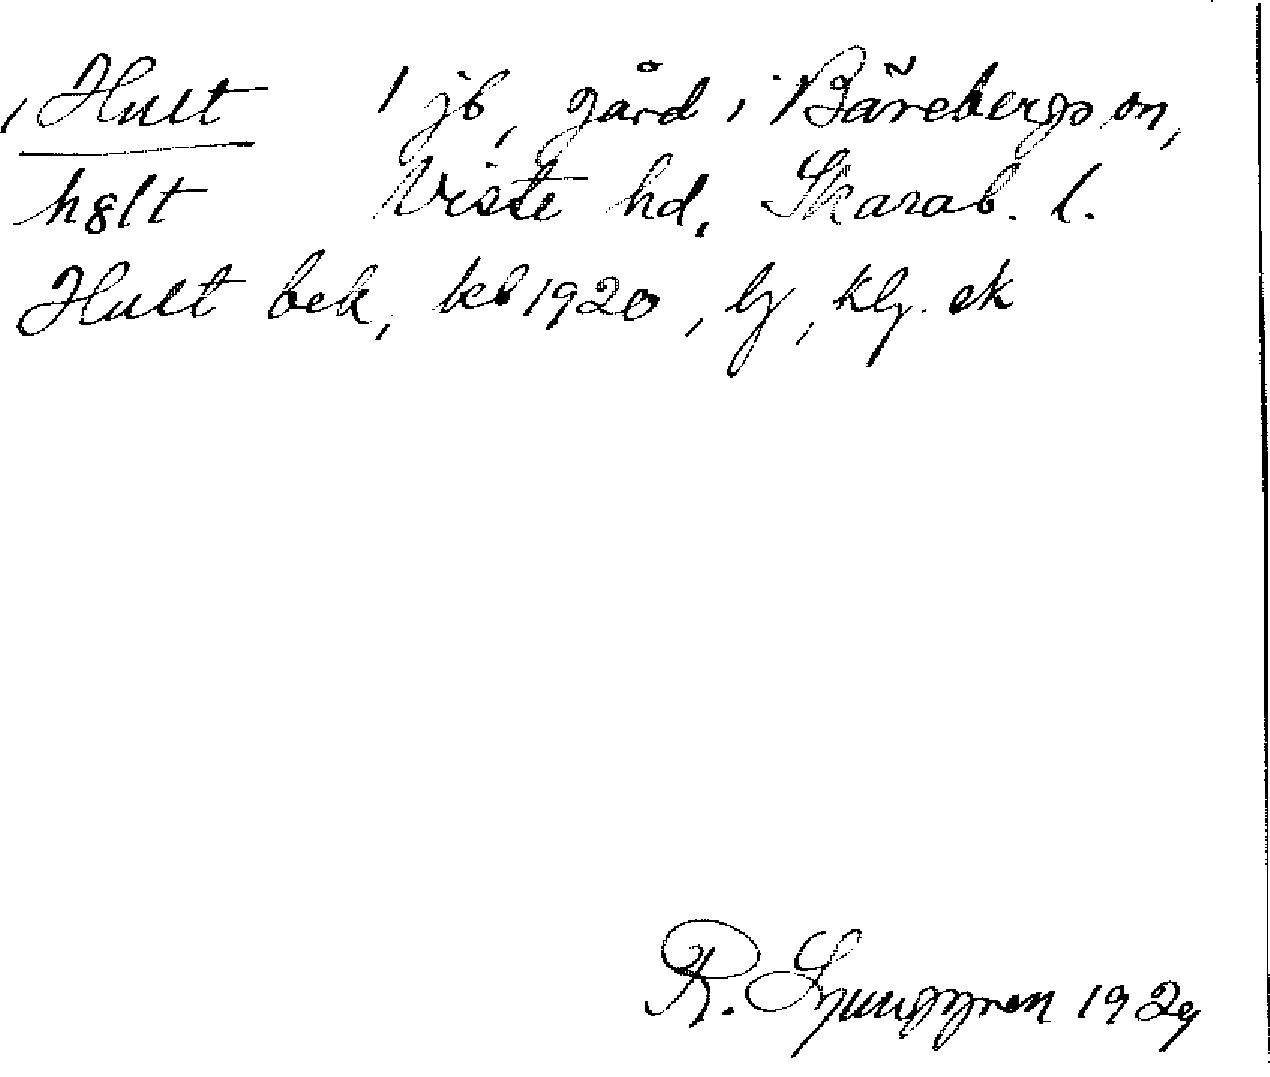 Hult 1 jb, gård i Bärebergs sn,
hglt Viste hd, Skarab. l.
Hult bek, kb 1920, by, klg. ek
R. Ljunggren 1929